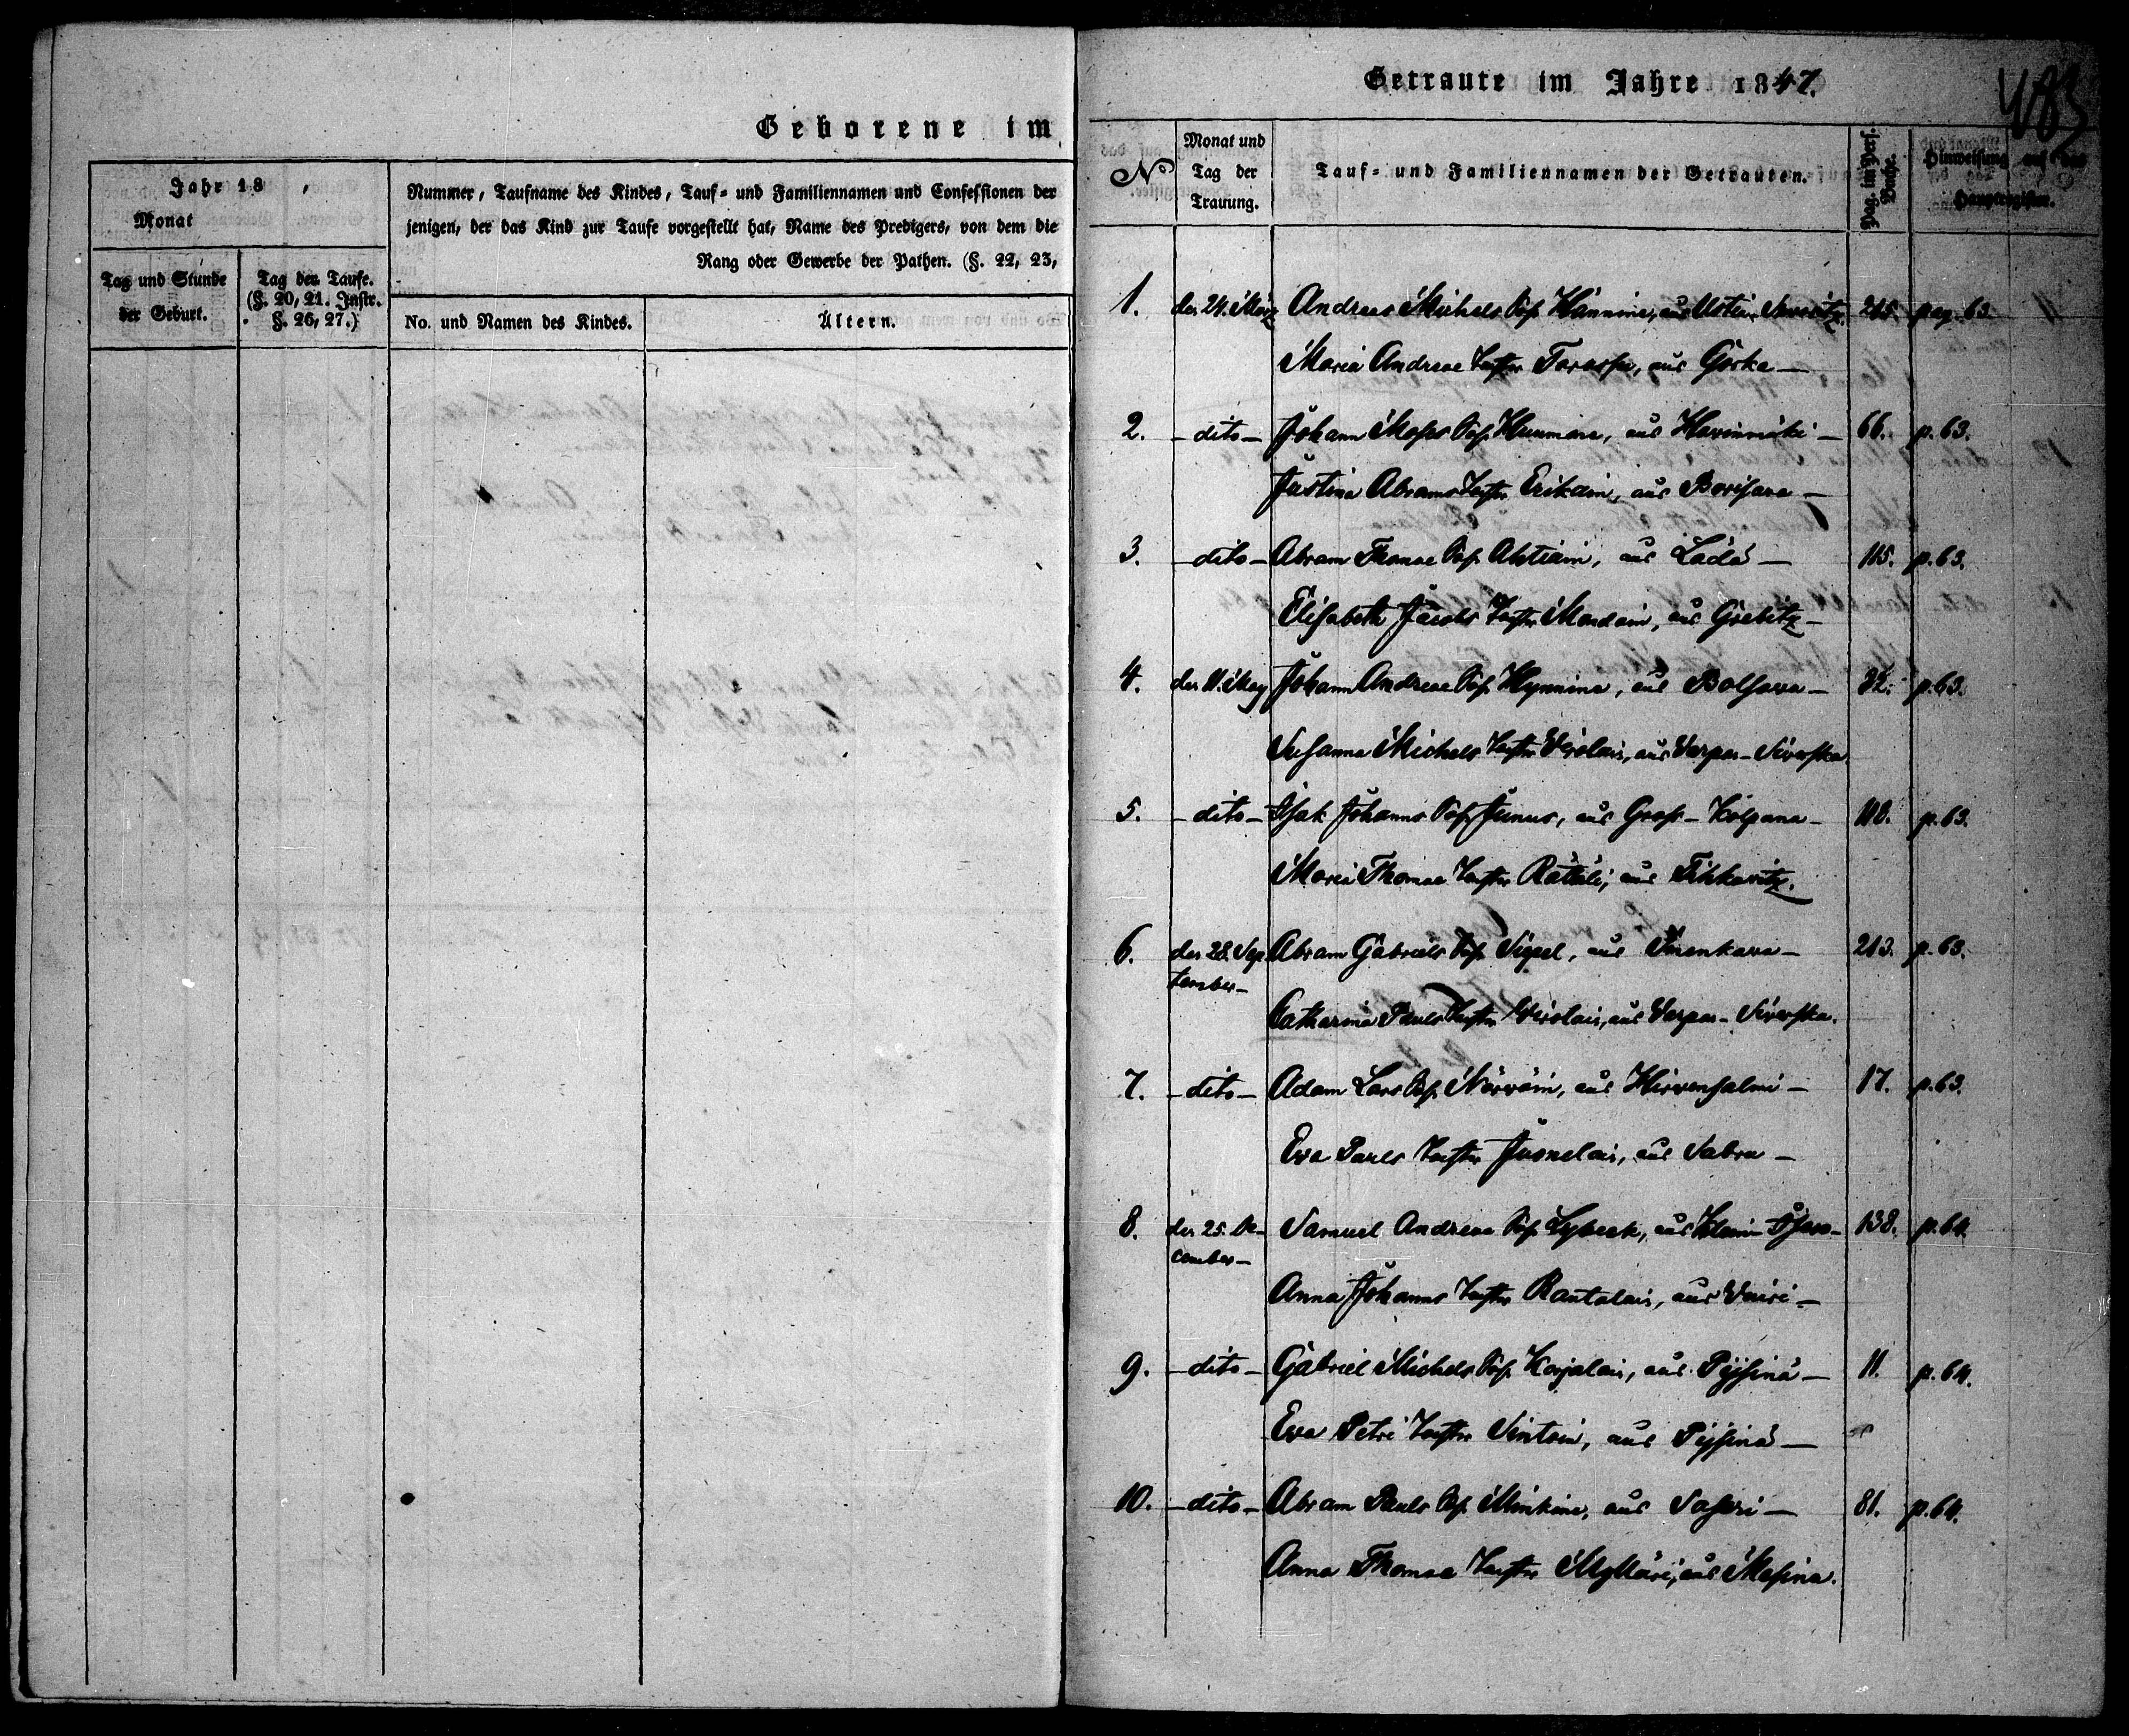 Geborene im
Jahr 18 ,
Monat
Nummer, Taufname des Kindes, Tauf- und Familiennamen und Confessionen der
jenigen, der das Kind zur Taufe vorgestellt hat, Name des Predigers, von dem die
Rang oder Gewerbe der Pathen. (§. 22, 23,
Tag und Stunde
der Geburt.
Tag der Taufe.
(§. 20, 21. Instr.
§. 26, 27.)
No. und Namen des Kindes.
Ältern.
Getraute im Jahre 1847.
483
No
Monat und
Tag der
Trauung.
Tauf- und Familiennamen der Getrauten.
Pag. im Pers.
Buche.
Hinweisung auf das
Hauptregister.
1. den 24. März Andreas Michels Sohn Hännine, aus 215. pag. 63.
Maria Andreae Tochter aus Gorka —
2. — dito — Johann Moses Sohn Huumone, aus Havinmäki — 66. p. 63.
Justina Abrams Tochter Erikäin, aus Borisava —
3. — dito — Abram Thomae Sohn Ahtiäin, aus Lädä — 115. p. 63.
Elisabeth Jacobs Tochter aus Grebitz —
4. den 11. May Johann Andreae Sohn Hynnine, aus 32. p. 63.
Susanna Michels Tochter Virolain, aus Varpa-Siverska
5. — dito — Isak Johanns Sohn Junus, aus Gross-Kolpana — 118. p. 63.
Maria Thomae Tochter Rättäli, aus Tihkavitz.
6. den 28. Sep- Abram Gabriels Sohn aus 213. p. 63.
tember —
Catharina Pauls Tochter Virolain, aus Varpa-Siverska.
7. — dito — Adam Lars Sohn Närväin, aus Hirvensalmi — 17. p. 63.
Eva Pauls Tochter aus Sabra —
8. den 25. De- Samuel Andreae Sohn Lybeck, aus Klein- 138. p. 64.
cember —
Anna Johanns Tochter Rautalain, aus
9. — dito — Gabriel Michels Sohn Karjalain, aus 11. p. 64.
Eva Petri Tochter aus
10. — dito — Abram Pauls Sohn Minkine, aus Saseri — 81. p. 64.
Anna Thomae Tochter Mylläri, aus Mesina.